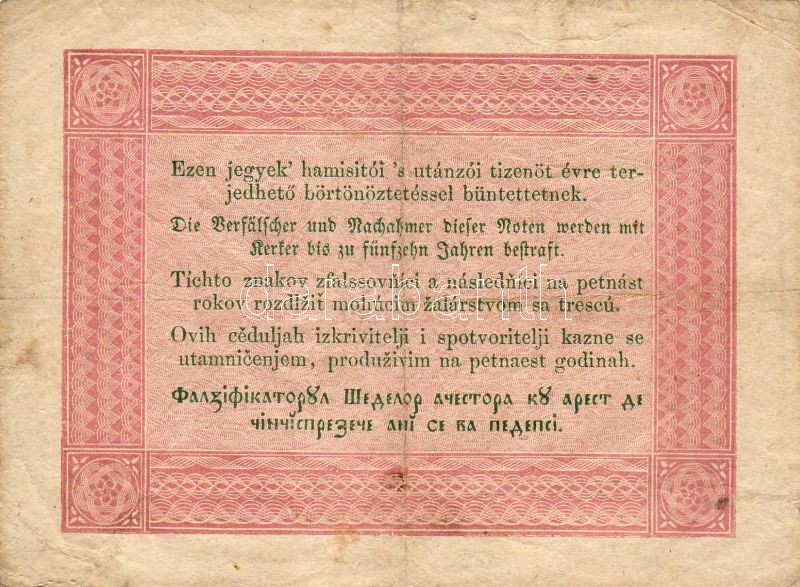 Ezen jegyek' hamisitói 's utánzói tizenöt évre ter-
jedhető börtönöztetéssel büntettetnek.
Die Verfälscher und Nachahmer dieser Noten werden mit
Kerker bis zu fünfzehn Jahren bestraft.
Tíchto znakov zfalssovňíci a následňíci na petnást
rokov rozdlžiť mohúcim žalárstvom sa trescú.
Ovih cěduljah izkrivitelji i spotvoritelji kazne se
utamničenjem, produživim na petnaest godinah.
Фалȣіфікаторȣл Шеделор ачестора кȣ арест де
чінчіспрезече ані се ва педепсі.
darabanth